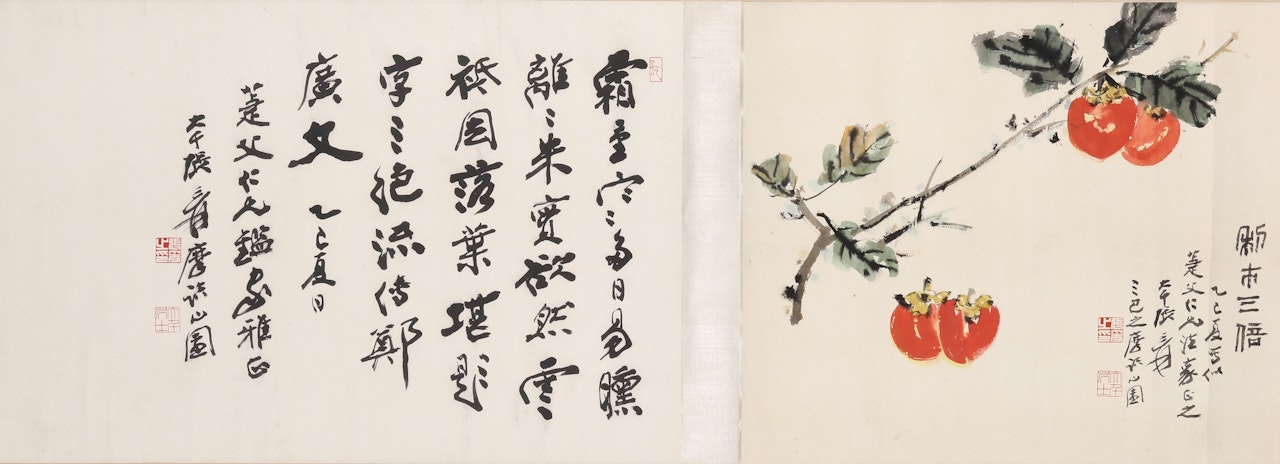 利市三倍
乙巳夏寫似
父仁兄法家正之
大千張爰
三巴之摩詰山園
霜重日易曛
離〻朱實欲然雲
祇園落葉堪題
字三絕流傳鄭
廣文 乙巳夏日
父仁兄鑑家雅正
大千張爰摩詰山園